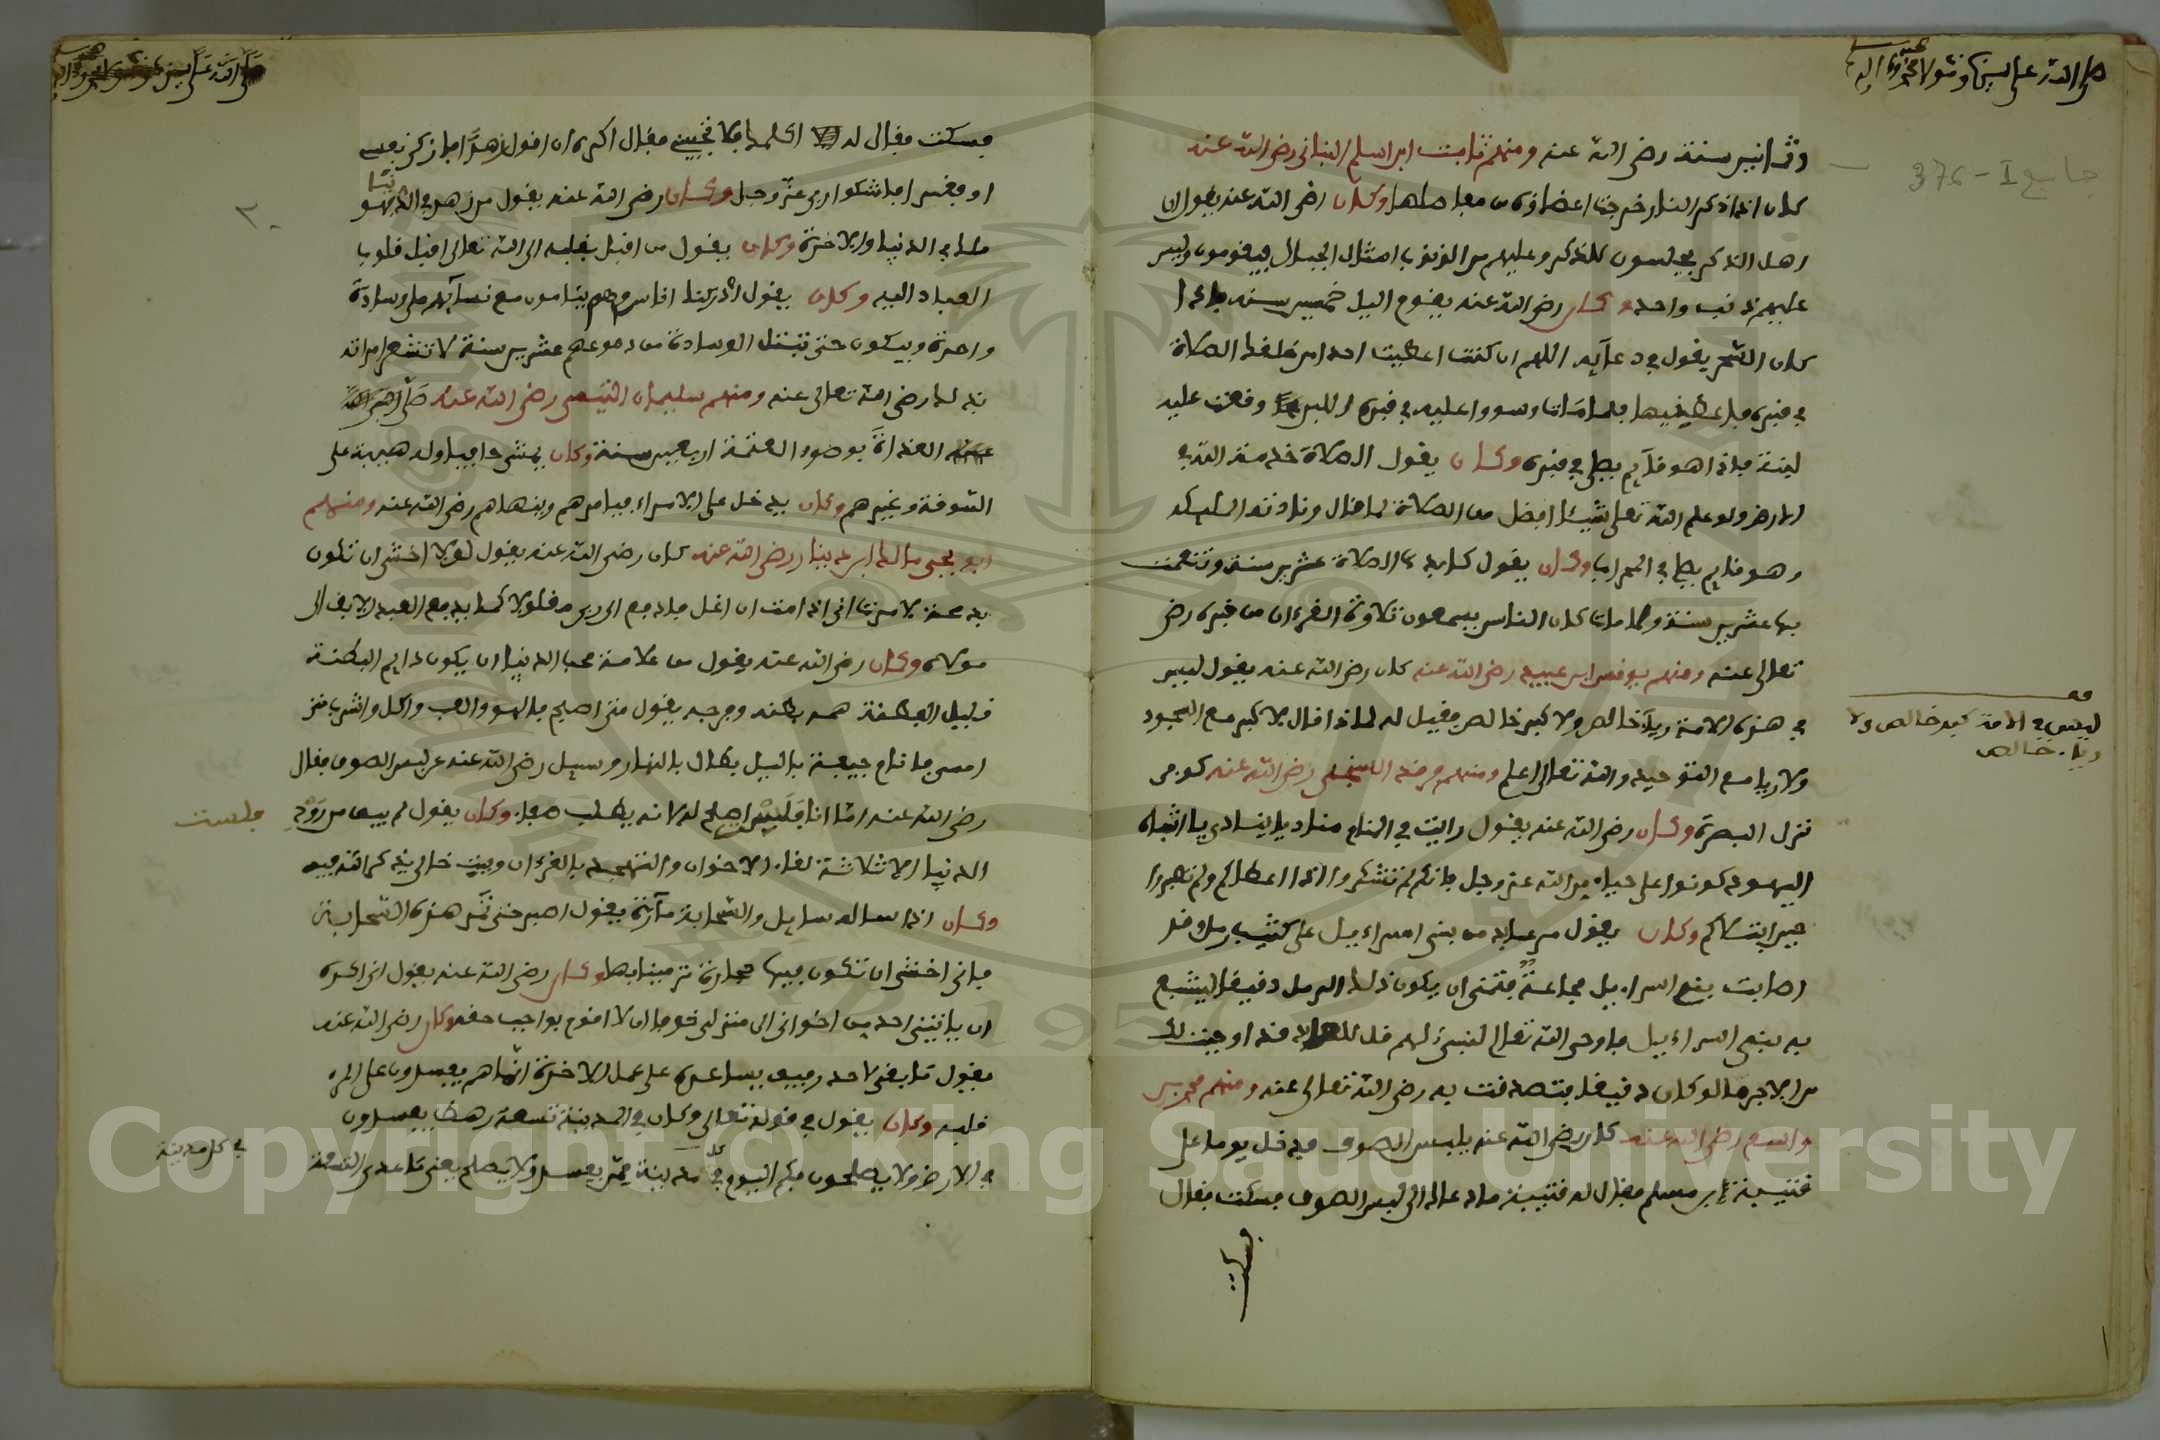 صلى الله على سيدنا ومولانا محمد وءاله
جامع I - 376
وثمانين سنة رضي الله عنه ومنهم ثابت ابن اسلم البناني رضي الله عنه
كان اذا ذكر النار خرجت اعضاؤه من مفاصلها وكان رضي الله عنه يقول ان
اهل الذكر يجلسون للذكر وعليهم من الذنوب امثال الجبال فيقومون وليس
عليهم ذنب واحد وكان رضي الله عنه يقوم اليل خمسين سنة فاذا
كان السحر يقول في دعآيه اللهم ان كنت اعطيت احدا من خلقك الصلاة
في قبره فاعطنيها فلما مات وسووا عليه في قبره اللبن وقعت عليه
لبنة فاذا هو قآيم يصلي في قبره وكان يقول الصلاة خدمة الله في
الارض ولو علم الله تعلى شيئا افضل من الصلاة لما قال ونادته الملئكة
وهو قايم يصلي في المحراب وكان يقول كابدت الصلاة عشرين سنة وتنعمت
بها عشرين سنة ولما مات كان الناس يسمعون تلاوة القرءان من قبره رضي
تعالى عنه ومنهم يونس ابن عبيد رضي الله عنه كان رضي الله عنه يقول ليس
في هذه الامة ريآ خالص ولا كبر خالص فقيل له لماذا قال لا كبر مع السجود
ولا ريا مع التوحيد والله تعالى اعلم ومنهم فرقد السبخي رضي الله عنه كوفي
نزل البصرة وكان رضي الله عنه يقول رايت في المنام مناديا ينادي يا اشباه
اليهود كونوا على حياء من الله عز وجل فانكم لم تشكروا اذا اعطاكم ولم تصبروا
حين ابتلاكم وكان يقول مر عابد من بني اسراءيل على كثيب رمل وقد
اصابت بني اسراءيل مجاعة فتمنى ان يكون ذلك الرمل دقيقا ليشبع
به بني اسراءيل فاوحى الله تعالى لنبيء لهم قل للعابد قد اوجبت لك
من الاجر ما لو كان دقيقا فتصدقت به رضي الله تعالى عنه ومنهم محمد بن
واسع رضي الله عنه كان رضي الله عنه يلبس الصوف فدخل يوما على
قتيبة ابن مسلم فقال له قتيبة ما دعاك الى لبس الصوف فسكت فقال
فسكت
ليس في الامة كبر خالص ولا
رياء خالص
صلى الله على سيدنا ومولانا محمد وءاله
٢٠
فسكت فقال له اكلمك فلا تجيبني فقال اكره ان اقول زهدا فازكي نفسي
او فقرا فاشكوا ربي عز وجل وكان رضي الله عنه يقول من زهد في الدنيا فهو
ملك في الدنيا والاخرة وكان يقول من اقبل بقلبه الى الله تعالى اقبل قلوب
العباد اليه وكان يقول ادركنا اناس وهم ينامون مع نسآيهم على وسادة
واحدة ويبكون حتى تبتل الوسادة من دموعهم عشرين سنة لا تشعر امراته
بذلك رضي الله تعالى عنه ومنهم سليمان التيمي رضي الله عنه صلى
الغداة بوضوء العتمة اربعين سنة وكان يمشي حافيا وله هيبة على
السوقة وغيرهم وكان يدخل على الامراء فيامرهم وينهاهم رضي الله عنه ومنهم
ابو يحيى مالك ابن دينار رضي الله عنه كان رضي الله عنه يقول لولا اخشى ان تكون
بدعة لامرت اني اذا مت ان اغل فادفع الى ربي مغلولا كما يدفع العبد الابق الى
مولاه وكان رضي الله عنه يقول من علامة محب الدنيا ان يكون دايم البطنة
قليل الفطنة همه بطنه وفرجه يقول متى اصبح فالهو والعب واكل واشرب متى
امسي فانام جيفة باليل بطال بالنهار وسيل رضي الله عنه عن لبس الصوف فقال
رضي الله عنه اما انا فليس يصلح له لانه يطلب صفاء وكان يقول لم يبق من روح
الدنيا الا ثلاثة لقاء الاخوان والتهجد بالقرءان وبيت خال يذكر الله فيه
وكان اذا ساله سايل والسحابة مآرة يقول اصبر حتى تمر هذه السحابة
فاني اخشى ان تكون فيها حجارة ترمينا بها وكان رضي الله عنه يقول اني اكره
ان ياتيني احد من اخواني الى منزلي خوفا ان لا اقوم بواجب حقه وكان رضي الله عنه
يقول ما بقي لاحد رفيق يساعده على عمل الاخرة انما هم يفسدون على المرء
قلبه وكان يقول في قوله تعالى وكان في المدينة تسعة رهط يفسدون
في الارض ولا يصلحون فكم اليوم في كل مدينة ممن يفسد ولا يصلح يعني ما عدى التسعة
في كل مدينة
Copyright © King Saud University
1957